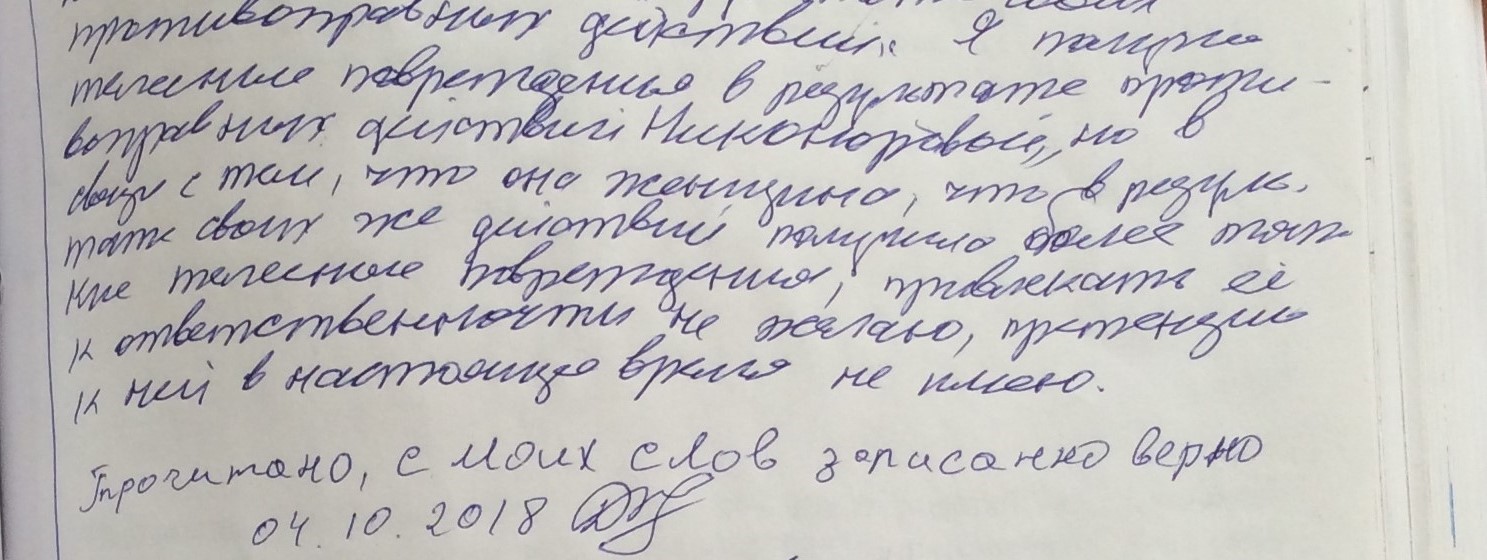 противоправных действий. Я получил
телесные повреждения в результате проти-
воправных действий Никоноровой, но в
связи с тем, что она женщина, что в резуль-
тате своих же действий получила более тяж-
кие телесные повреждения, привлекать её
к ответственности не желаю, претензий
к ней в настоящее время не имею.
Прочитано, с моих слов записанно верно
04.10.2018